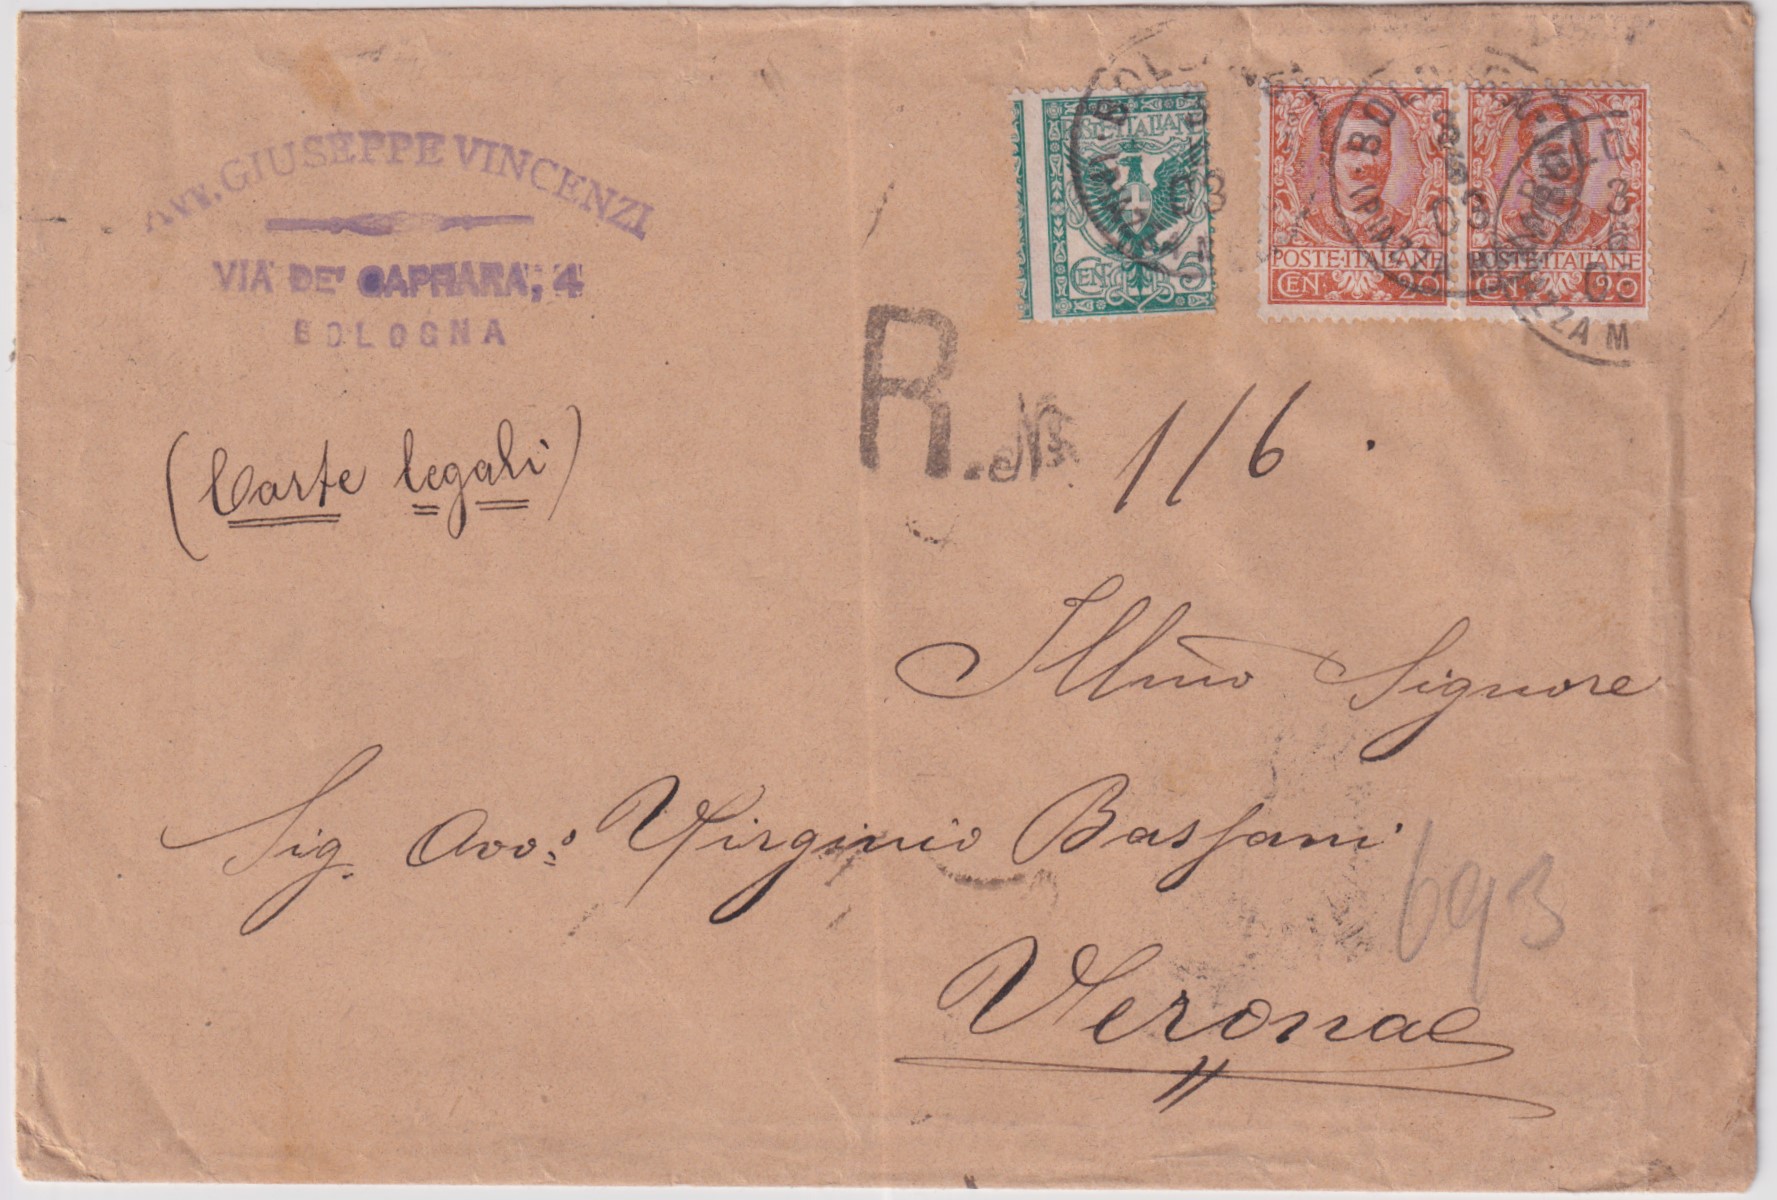 Avv. GIUSEPPE VINCENZI
VIA DE' CAPRARA, 4
BOLOGNA
(Carte legali)
POSTE ITALIANE
CENT 5
POSTE·ITALIANE
CEN. 20
POSTE·ITALIANE
CEN. 20
BOLOGNA
3
03
BOLOGNA
3
03
PIAZZA M
3
ZZA M
R. No
116.
Illmo Signore
Sig. Avvo. Virginio Bassani
693
Verona